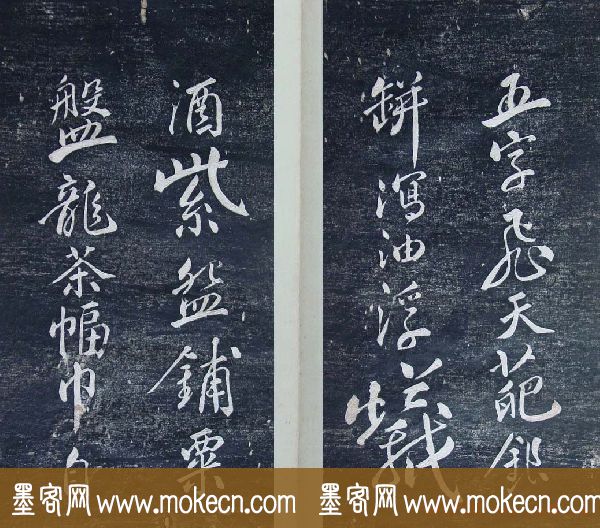 五字飛天葩銀
缾瀉油浮蟻
酒紫盌鋪粟
盤龍茶幅巾
墨客网 www.mokecn.com
墨客网 www.mokecn.com